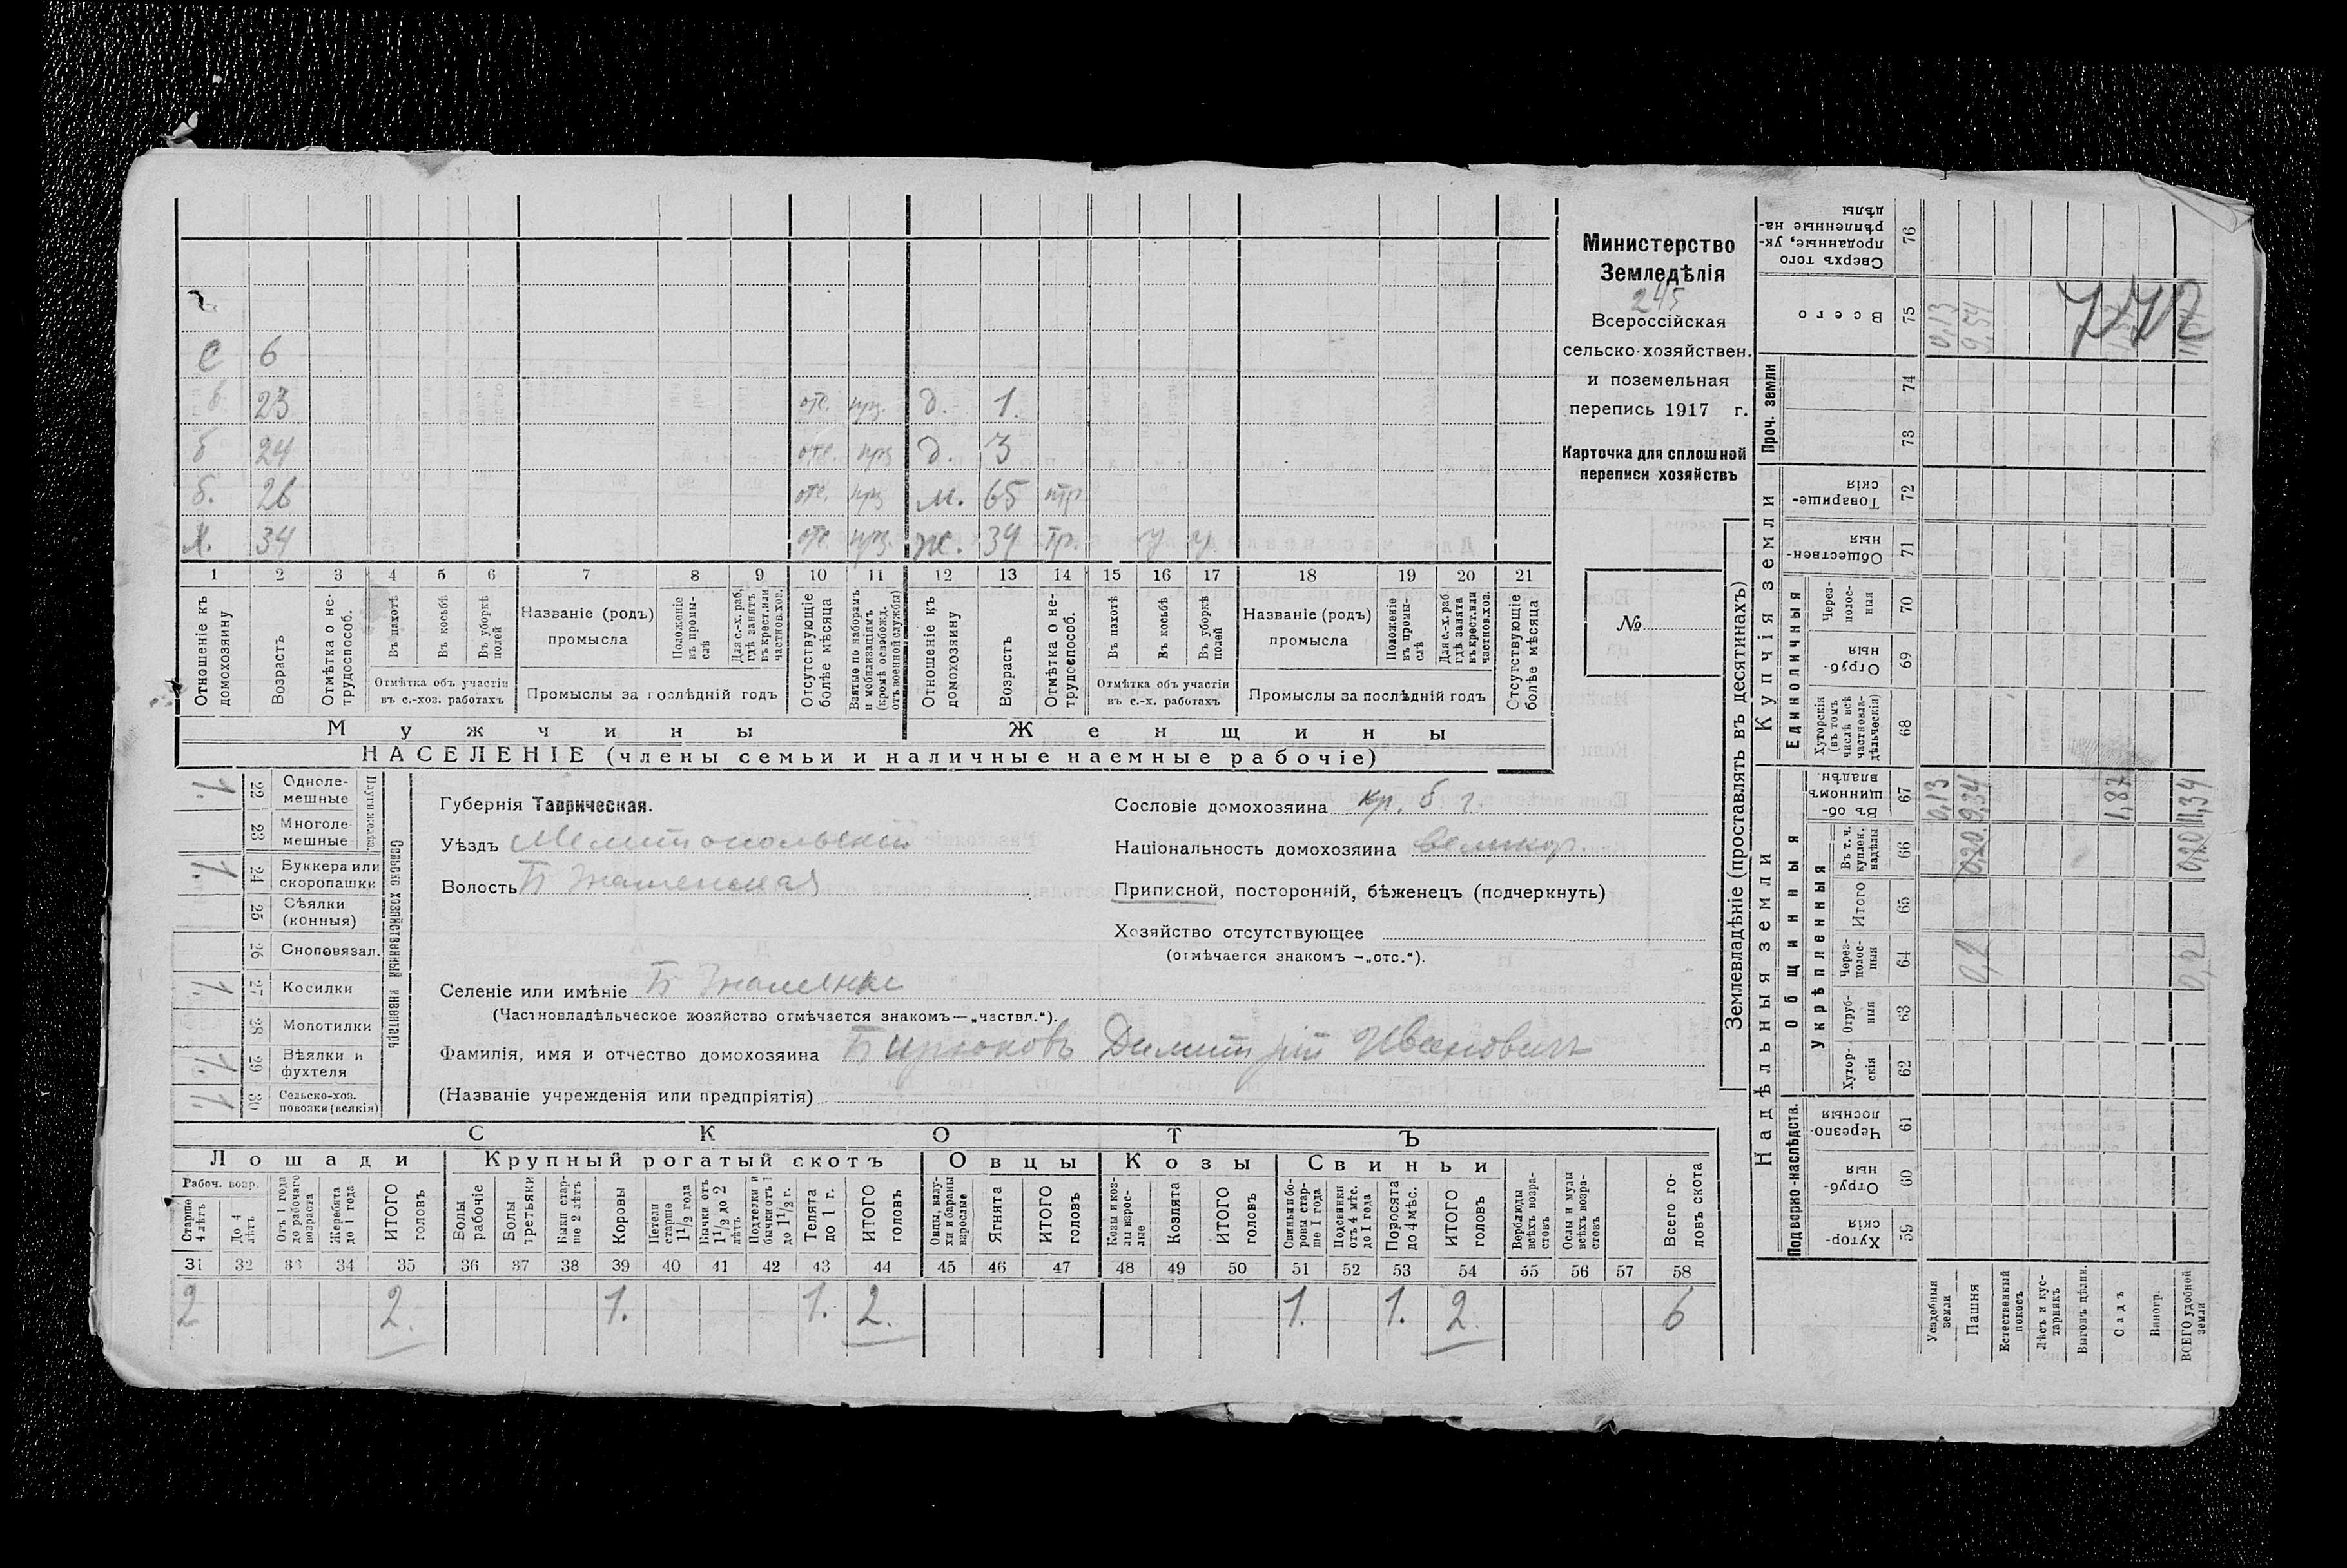 Министерство
Земледѣлія
245
Всероссійская
сельско-хозяйствен.
и поземельная
перепись 1917 г.
Карточка для сплошной
переписи хозяйствъ
№
с 6
б 23 отс. прз. д. 1.
б 24 отс. прз д. 3
б. 26 отс. прз м. 65 нтр
х. 34 отс. прз. ж. 34 тр. у у
1 2 3 4 5 6 7 8 9 10 11 12 13 14 15 16 17 18 19 20 21
Отношеніе къ домохозяину
Возрастъ
Отмѣтка о не-трудоспособ.
Въ пахотѣ
Въ косьбѣ
Въ уборкѣ полей
Отмѣтка объ участіи
въ с.-хоз. работахъ
Названіе (родъ)
промысла
Положеніе въ промы-слѣ
Для с.-х. раб. гдѣ занятъ въ крест. или частнов. хоз.
Промыслы за послѣдній годъ
Отсутствующіе болѣе мѣсяца
Взятые по наборамъ и мобилизаціямъ (кромѣ освобожд. отъ военной службы)
Отношеніе къ домохозяину
Возрастъ
Отмѣтка о не-трудоспособ.
Въ пахотѣ
Въ косьбѣ
Въ уборкѣ полей
Отмѣтка объ участіи
въ с.-х. работахъ
Названіе (родъ)
промысла
Положеніе въ промы-слѣ
Для с.-х. раб. гдѣ занята въ крест. или частнов. хоз.
Промыслы за послѣдній годъ
Отсутствующіе болѣе мѣсяца
Мужчины Женщины
НАСЕЛЕНІЕ (члены семьи и наличные наемные рабочіе)
Сельско хозяйственный инвентарь
Плуги желѣз.
1. 22 Одноле-мешные
23 Многоле-мешные
1. 24 Буккера или скоропашки
25 Сѣялки (конныя)
26 Сноповязал.
1. 27 Косилки
28 Молотилки
1. 29 Вѣялки и фухтеля
1. 30 Сельско-хоз. повозки (всякія)
Губернія Таврическая.
Уѣздъ Мелитопольскій
Волость Б Знаменская
Сословіе домохозяина кр. б г.
Національность домохозяина великор.
Приписной, посторонній, бѣженецъ (подчеркнуть)
Хозяйство отсутствующее
(отмѣчается знакомъ —„отс.“).
Селеніе или имѣніе Б Знаменка
(Частновладѣльческое хозяйство отмѣчается знакомъ—„частвл.“).
Фамилія, имя и отчество домохозяина Бирюковъ Димитрій Ивановичъ
(Названіе учрежденія или предпріятія)
СКОТЪ
Лошади Крупный рогатый скотъ Овцы Козы Свиньи
Рабоч. возр.
Старше 4 лѣтъ
До 4 лѣтъ
Отъ 1 года до рабочаго возраста
Жеребята до 1 года
ИТОГО головъ
Волы рабочіе
Волы третьяки
Быки стар-ше 2 лѣтъ
Коровы
Нетели старше 1 1/2 года
Бычки отъ 1 1/2 до 2 лѣтъ
Подтелки и бычки отъ 1 до 1 1/2 г.
Телята до 1 г.
ИТОГО головъ
Овцы, валу-хи и бараны взрослые
Ягнята
ИТОГО головъ
Козы и коз-лы взрос-лые
Козлята
ИТОГО головъ
Свиньи и бо-ровы стар-ше 1 года
Подсвинки отъ 4 мѣс. до 1 года
Поросята до 4 мѣс.
ИТОГО головъ
Верблюды всѣхъ возра-стовъ
Ослы и мулы всѣхъ возра-стовъ
Всего го-ловъ скота
31 32 33 34 35 36 37 38 39 40 41 42 43 44 45 46 47 48 49 50 51 52 53 54 55 56 57 58
2 2. 1. 1. 2. 1. 1. 2. 6
Землевладѣніе (проставлять въ десятинахъ)
Надѣльныя земли
Купчія земли
Проч. земли
Подворно-наслѣдств.
Общинныя
Укрѣпленныя
Единоличныя
Сверхъ того проданные, ук-рѣпленные на-дѣлы 76
Всего 75 0,13 9,54 772
74
73
Товарище-скія 72
Обществен-ныя 71
Через-полос-ныя 70
Отруб-ныя 69
Хуторскія (въ томъ числѣ всѣ частновла-дѣльческія) 68
Въ об-щинномъ владѣн. 67 0,13 9,34 1,87 11,34
Въ т. ч. куплен. надѣлы 66 0,20 0,20
Итого 65
Через-полос-ныя 64 0,2 0,2
Отруб-ныя 63
Хутор-скія 62
Черезпо-лосныя 61
Отруб-ныя 60
Хутор-скія 59
Усадебныя земли
Пашня
Естественный покосъ
Лѣсъ и кус-тарникъ
Выгонъ цѣлин.
Садъ
Виногр.
ВСЕГО удобной земли